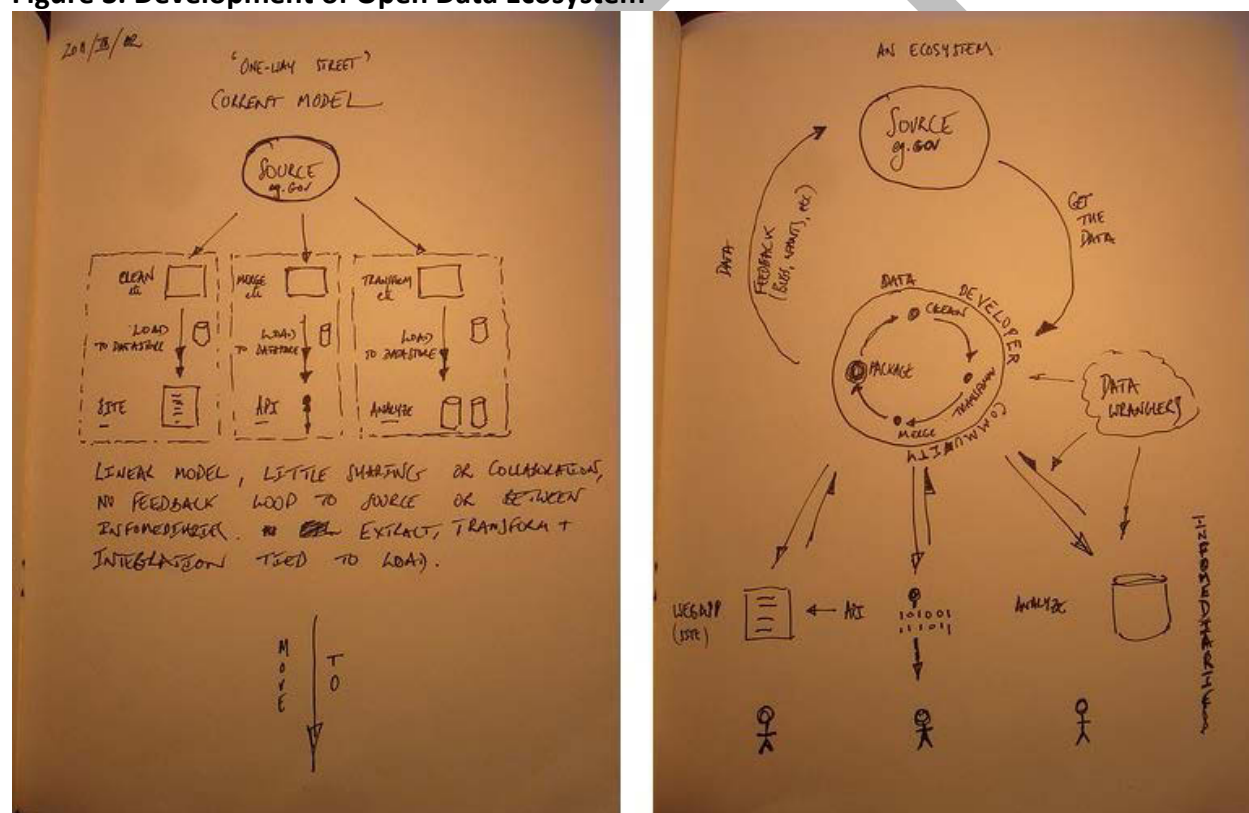 Figure 3. Development of Open Data Ecosystem
2011/III/02
"ONE-WAY STREET"
CURRENT MODEL
SOURCE
eg. GOV
CLEAN
etc
MERGE
etc
TRANSFORM
etc
LOAD
TO DATASTORE
LOAD
TO DATASTORE
LOAD
TO DATASTORE
SITE
API
ANALYZE
LINEAR MODEL, LITTLE SHARING OR COLLABORATION,
NO FEEDBACK LOOP TO SOURCE OR BETWEEN
INFOMEDIARIES. EXTRACT, TRANSFORM +
INTEGRATION TIED TO LOAD.
MOVE
TO
AN ECOSYSTEM
SOURCE
eg. GOV
GET
THE
DATA
DATA
FEEDBACK
(BUGS, WANTS, etc)
DATA DEVELOPER COMMUNITY
CLEAN
TRANSFORM
MERGE
PACKAGE
DATA
WRANGLERS
WEBAPP
(SITE)
API
101001
111011
ANALYZE
INFOMEDIARIES